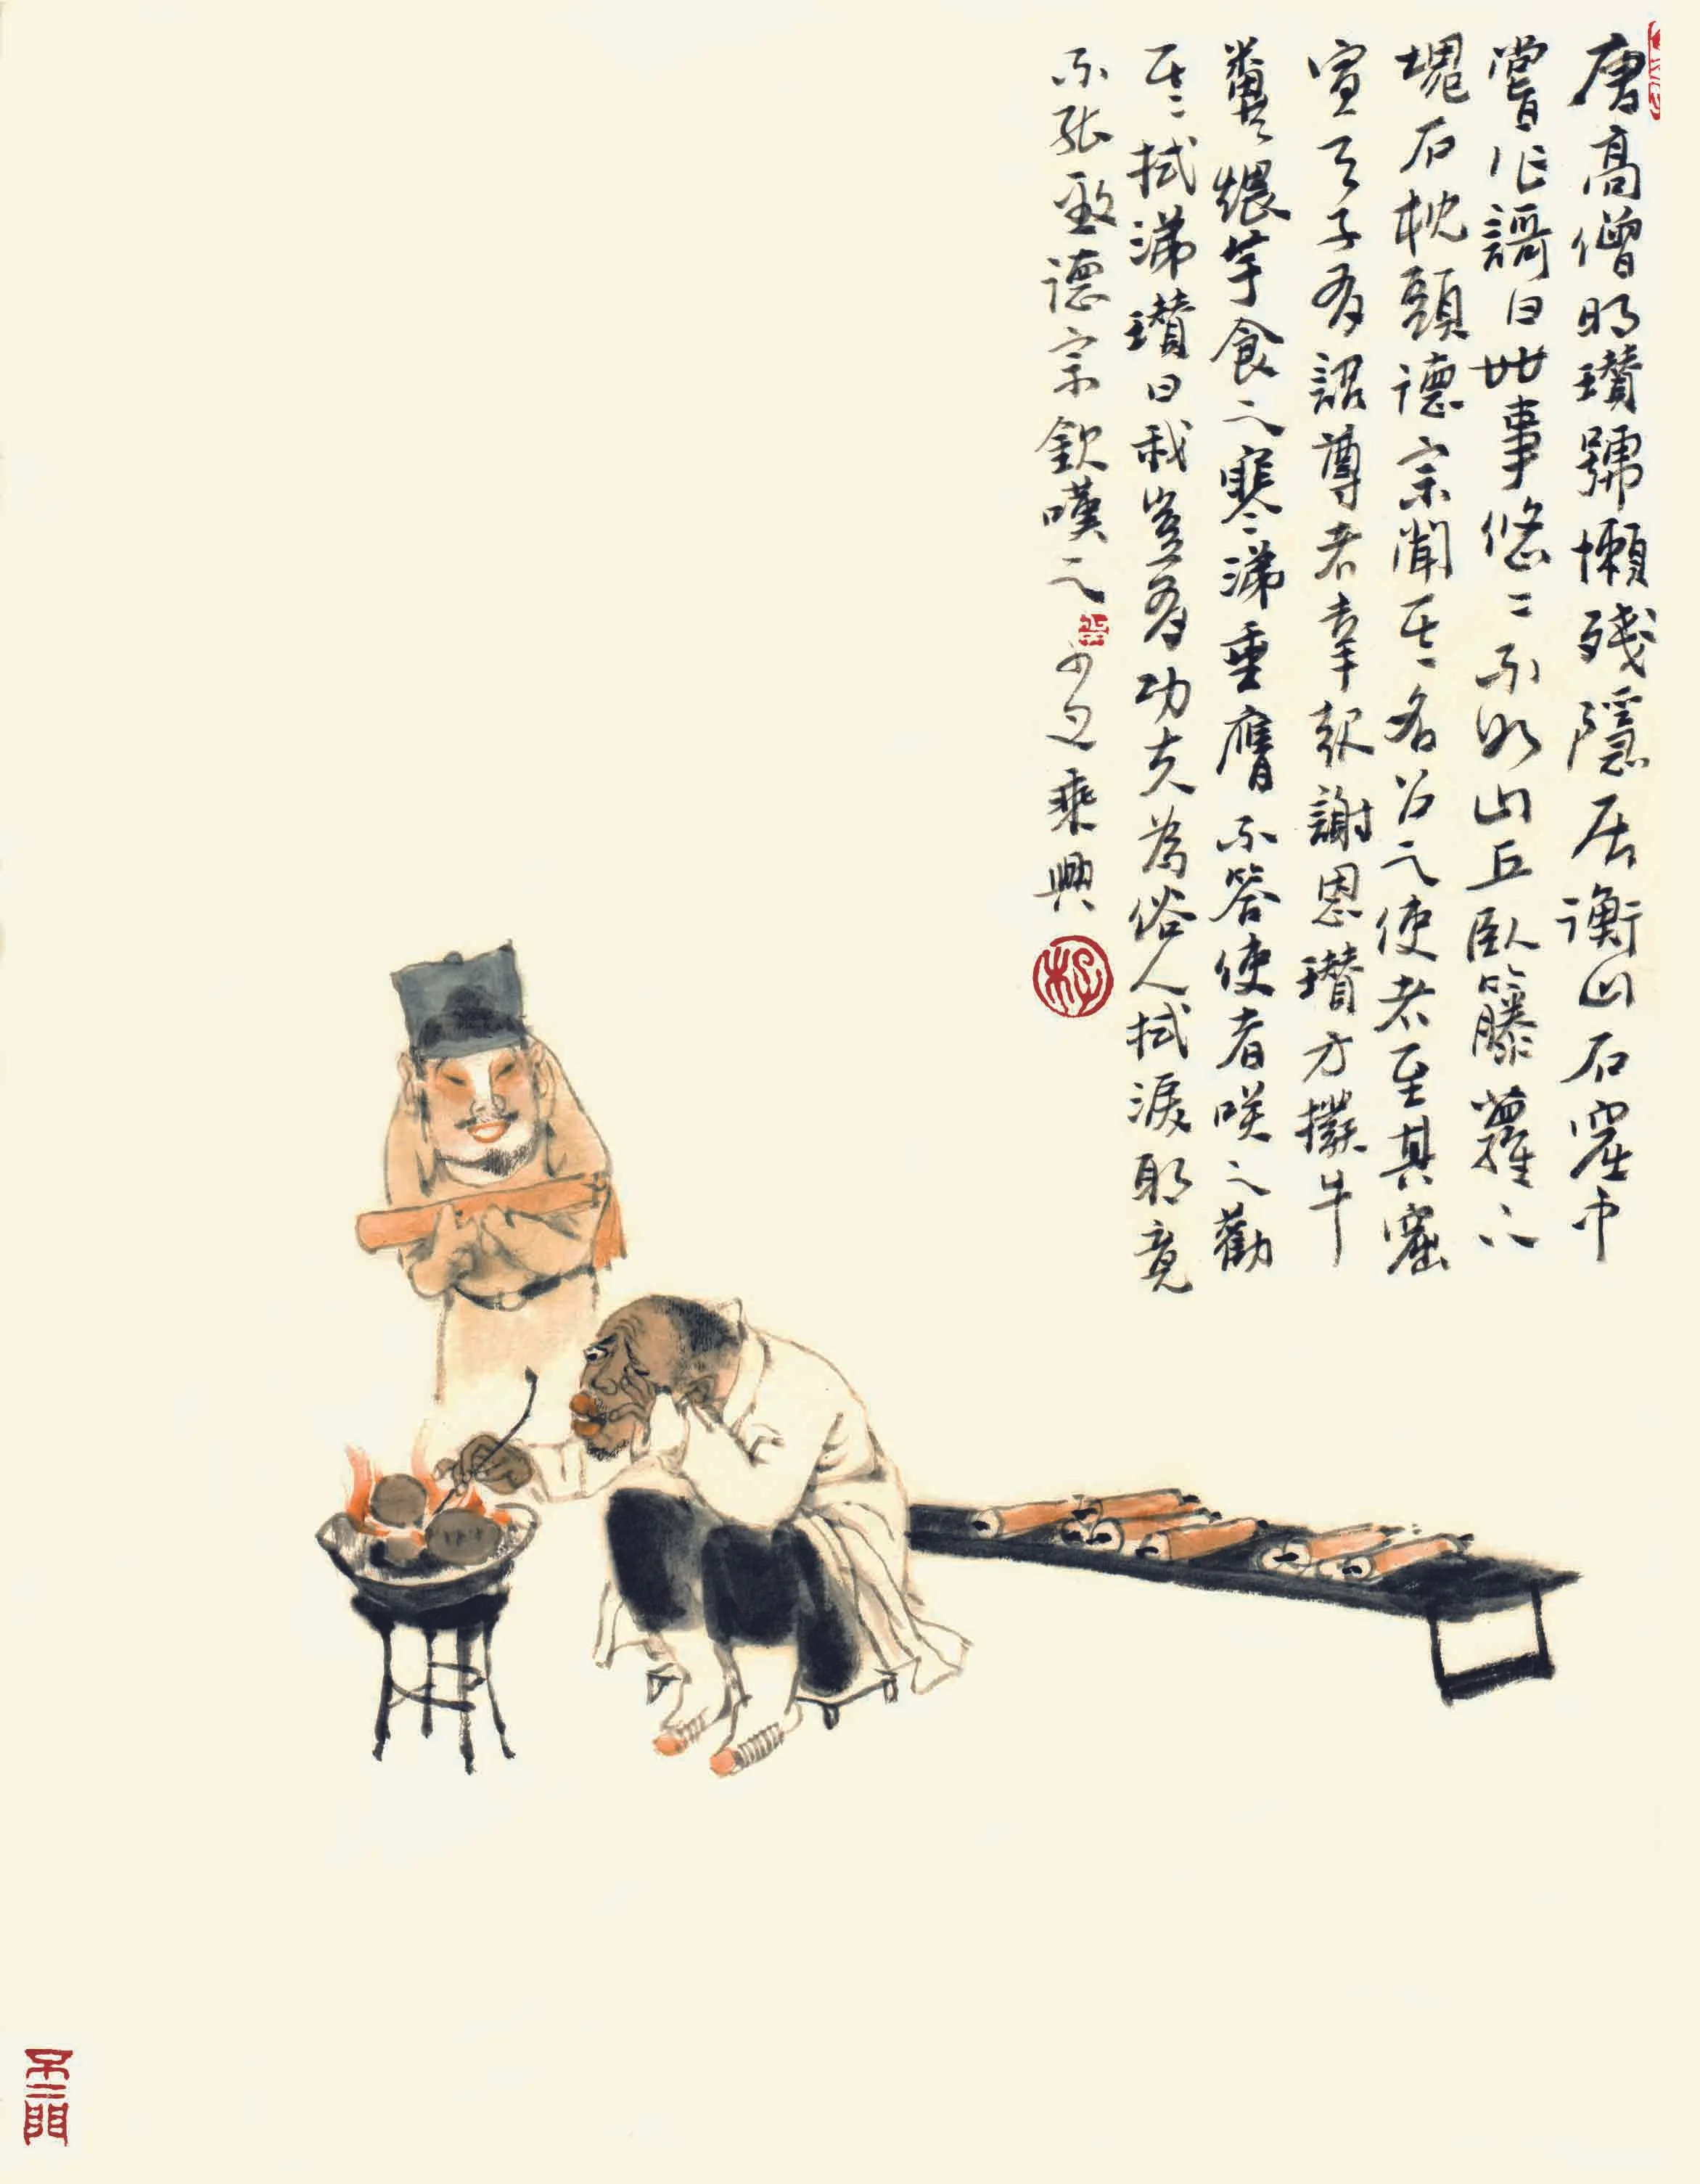 唐高僧明瓚號懶殘隱居衡山石窟中
嘗作謌曰世事悠二不如山丘臥籐蘿下
塊石枕頭德宗聞其名召之使者至其窟
宣天子有詔尊者幸起謝恩瓚方撥牛
糞煨芋食之寒涕垂膺不答使者笑之勸
其拭涕瓚曰我豈有功夫為俗人拭淚耶竟
不能致德宗欽嘆之 少之乘興
不二門